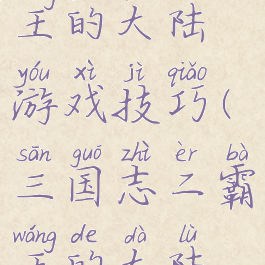 王的大陆
yóu xì jì qiǎo
游戏技巧(
sān guó zhì èr bà
三国志二霸
wáng de dà lù
王的大陆